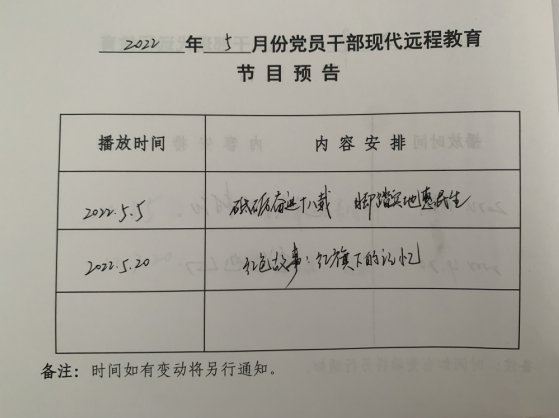 2022 年 5 月份党员干部现代远程教育
节目预告
播放时间 内容安排
2022.5.5 砥砺奋进十八载 脚踏实地惠民生
2022.5.20 红色故事:红旗下的记忆
备注:时间如有变动将另行通知。